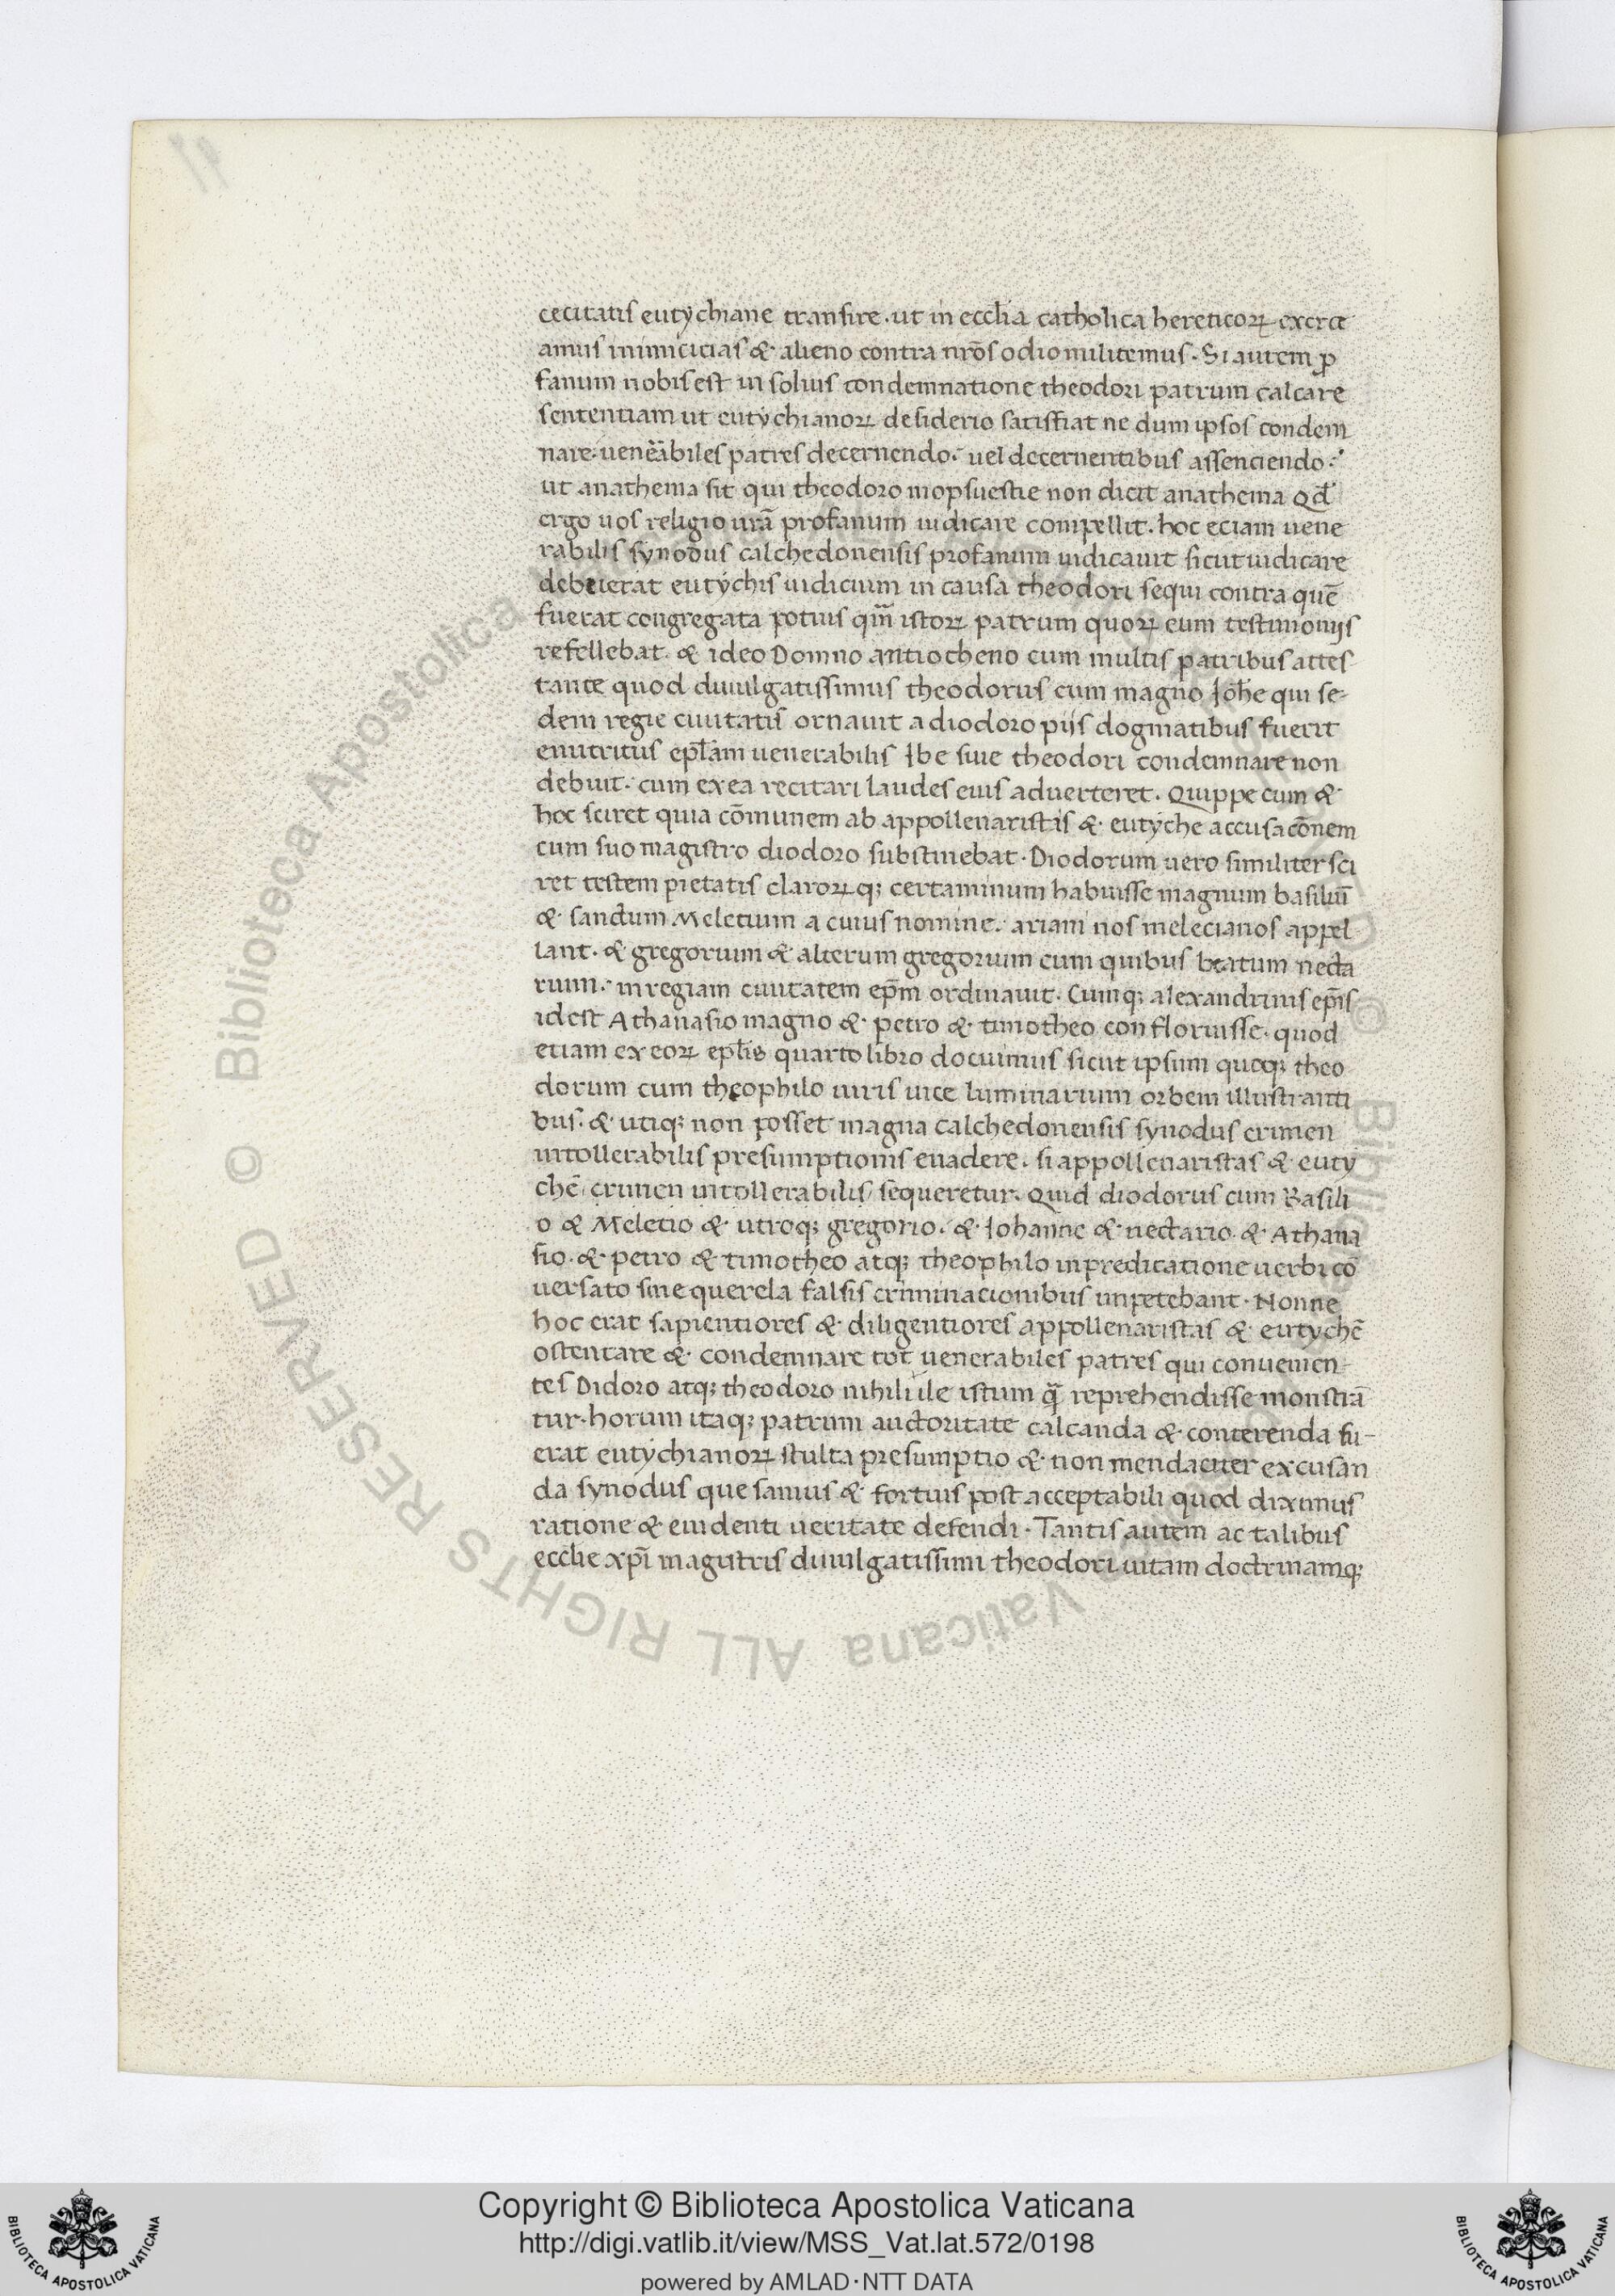 cecitatis eutychiane transire· ut in eccl̄ia catholica hereticoꝝ exerce
amus inimicicias &· alieno contra nr̄os odio militemus· Si autem ꝓ
fanum nobis est in solius condemnatione theodori patrum calcare
sententiam ut eutychianoꝝ desiderio satisfiat ne dum ipsos condem
nare· venerabiles patres decernendo· uel decernentibus assenciendo·
ut anathema sit qui theodoro mopsuestie non dicit anathema Qd̄
ergo uos religio urā profanum iudicare compellit· hoc eciam uene
rabilis synodus calchedonensis profanum iudicauit sicut iudicare
debuerat eutychis iudicium in causa theodori sequi contra quē
fuerat congregata potius qm̄ istoꝝ patrum quoꝝ eum testimoniis
refellebat· & ideo Domno antiocheno cum multis patribus attes
tante quod diuulgatissimus theodorus cum magno Joh̄e qui se-
dem regie ciuitatis ornauit a diodoro piis dogmatibus fuerit
enutritus epl̄am uenerabilis Ibe siue theodori condemnare non
debuit· cum ex ea recitari laudes eius aduerteret· Quippe cum &·
hoc sciret quia cōmunem ab appollenaristis &· eutyche accusacōnem
cum suo magistro diodoro substinebat· Diodorum uero similiter sci
ret testem pietatis claroꝝ qꝫ certaminum habuisse magnum basiliū
&· sanctum Meletium a cuius nomine· ariani nos melecianos appel
lant· &· gregorium &· alterum gregorium cum quibus beatum necta
rium· in regiam ciuitatem ep̄m ordinauit· Cumqꝫ alexandrinis ep̄is
idest Athanasio magno &· petro &· timotheo confloruisse· quod
etiam ex eoꝝ epl̄is quarto libro docuimus sicut ipsum quoqꝫ theo
dorum cum theophilo uiris uice luminarium orbem illustranti
bus· &· utiqꝫ non posset magna calchedonensis synodus crimen
intollerabilis presumptionis euadere· si appollenaristas &· euty
chē crimen intollerabilis sequeretur· Quid diodorus cum Basili
o & Meletio &· utroqꝫ gregorio· &· Johanne &· nectario· &· Athana
sio· &· petro &· timotheo atqꝫ theophilo in predicatione uerbi cō
uersato sine querela falsis criminacionibus inpetebant· Nonne
hoc erat sapientiores &· diligentiores appollenaristas &· eutychē
ostentare &· condemnare tot uenerabiles patres qui conuenien-
tes Didoro atqꝫ theodoro nihil ile istum reprehendisse monstrā
tur· horum itaqꝫ patrum auctoritate calcanda &· conterenda fu-
erat eutychianoꝝ stulta presumptio &· non mendaciter excusan
da synodus que sanius &· fortius post acceptabili quod diximus
ratione &· euidenti ueritate defendi· Tantis autem ac talibus
ecclie xp̄i magistris diuulgatissimi theodori uitam doctrinamqꝫ
Copyright © Biblioteca Apostolica Vaticana
http://digi.vatlib.it/view/MSS_Vat.lat.572/0198
powered by AMLAD·NTT DATA
BIBLIOTECA APOSTOLICA VATICANA
BIBLIOTECA APOSTOLICA VATICANA
© Biblioteca Apostolica Vaticana ALL RIGHTS RESERVED